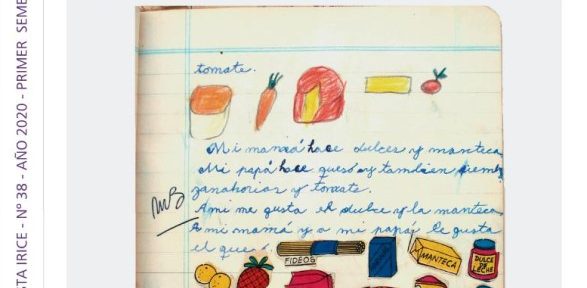 STA IRICE - Nº 38 - AÑO 2020 - PRIMER SEME
tomate.
Mi mamá hace dulces y manteca
Mi papá hace queso y también siemb
zanahorias y tomate.
MB
A mi me gusta el dulce y la manteca
a mi mamá y a mi papá le gusta
el queso
FIDEOS
MANTECA
DULCE DE LECHE